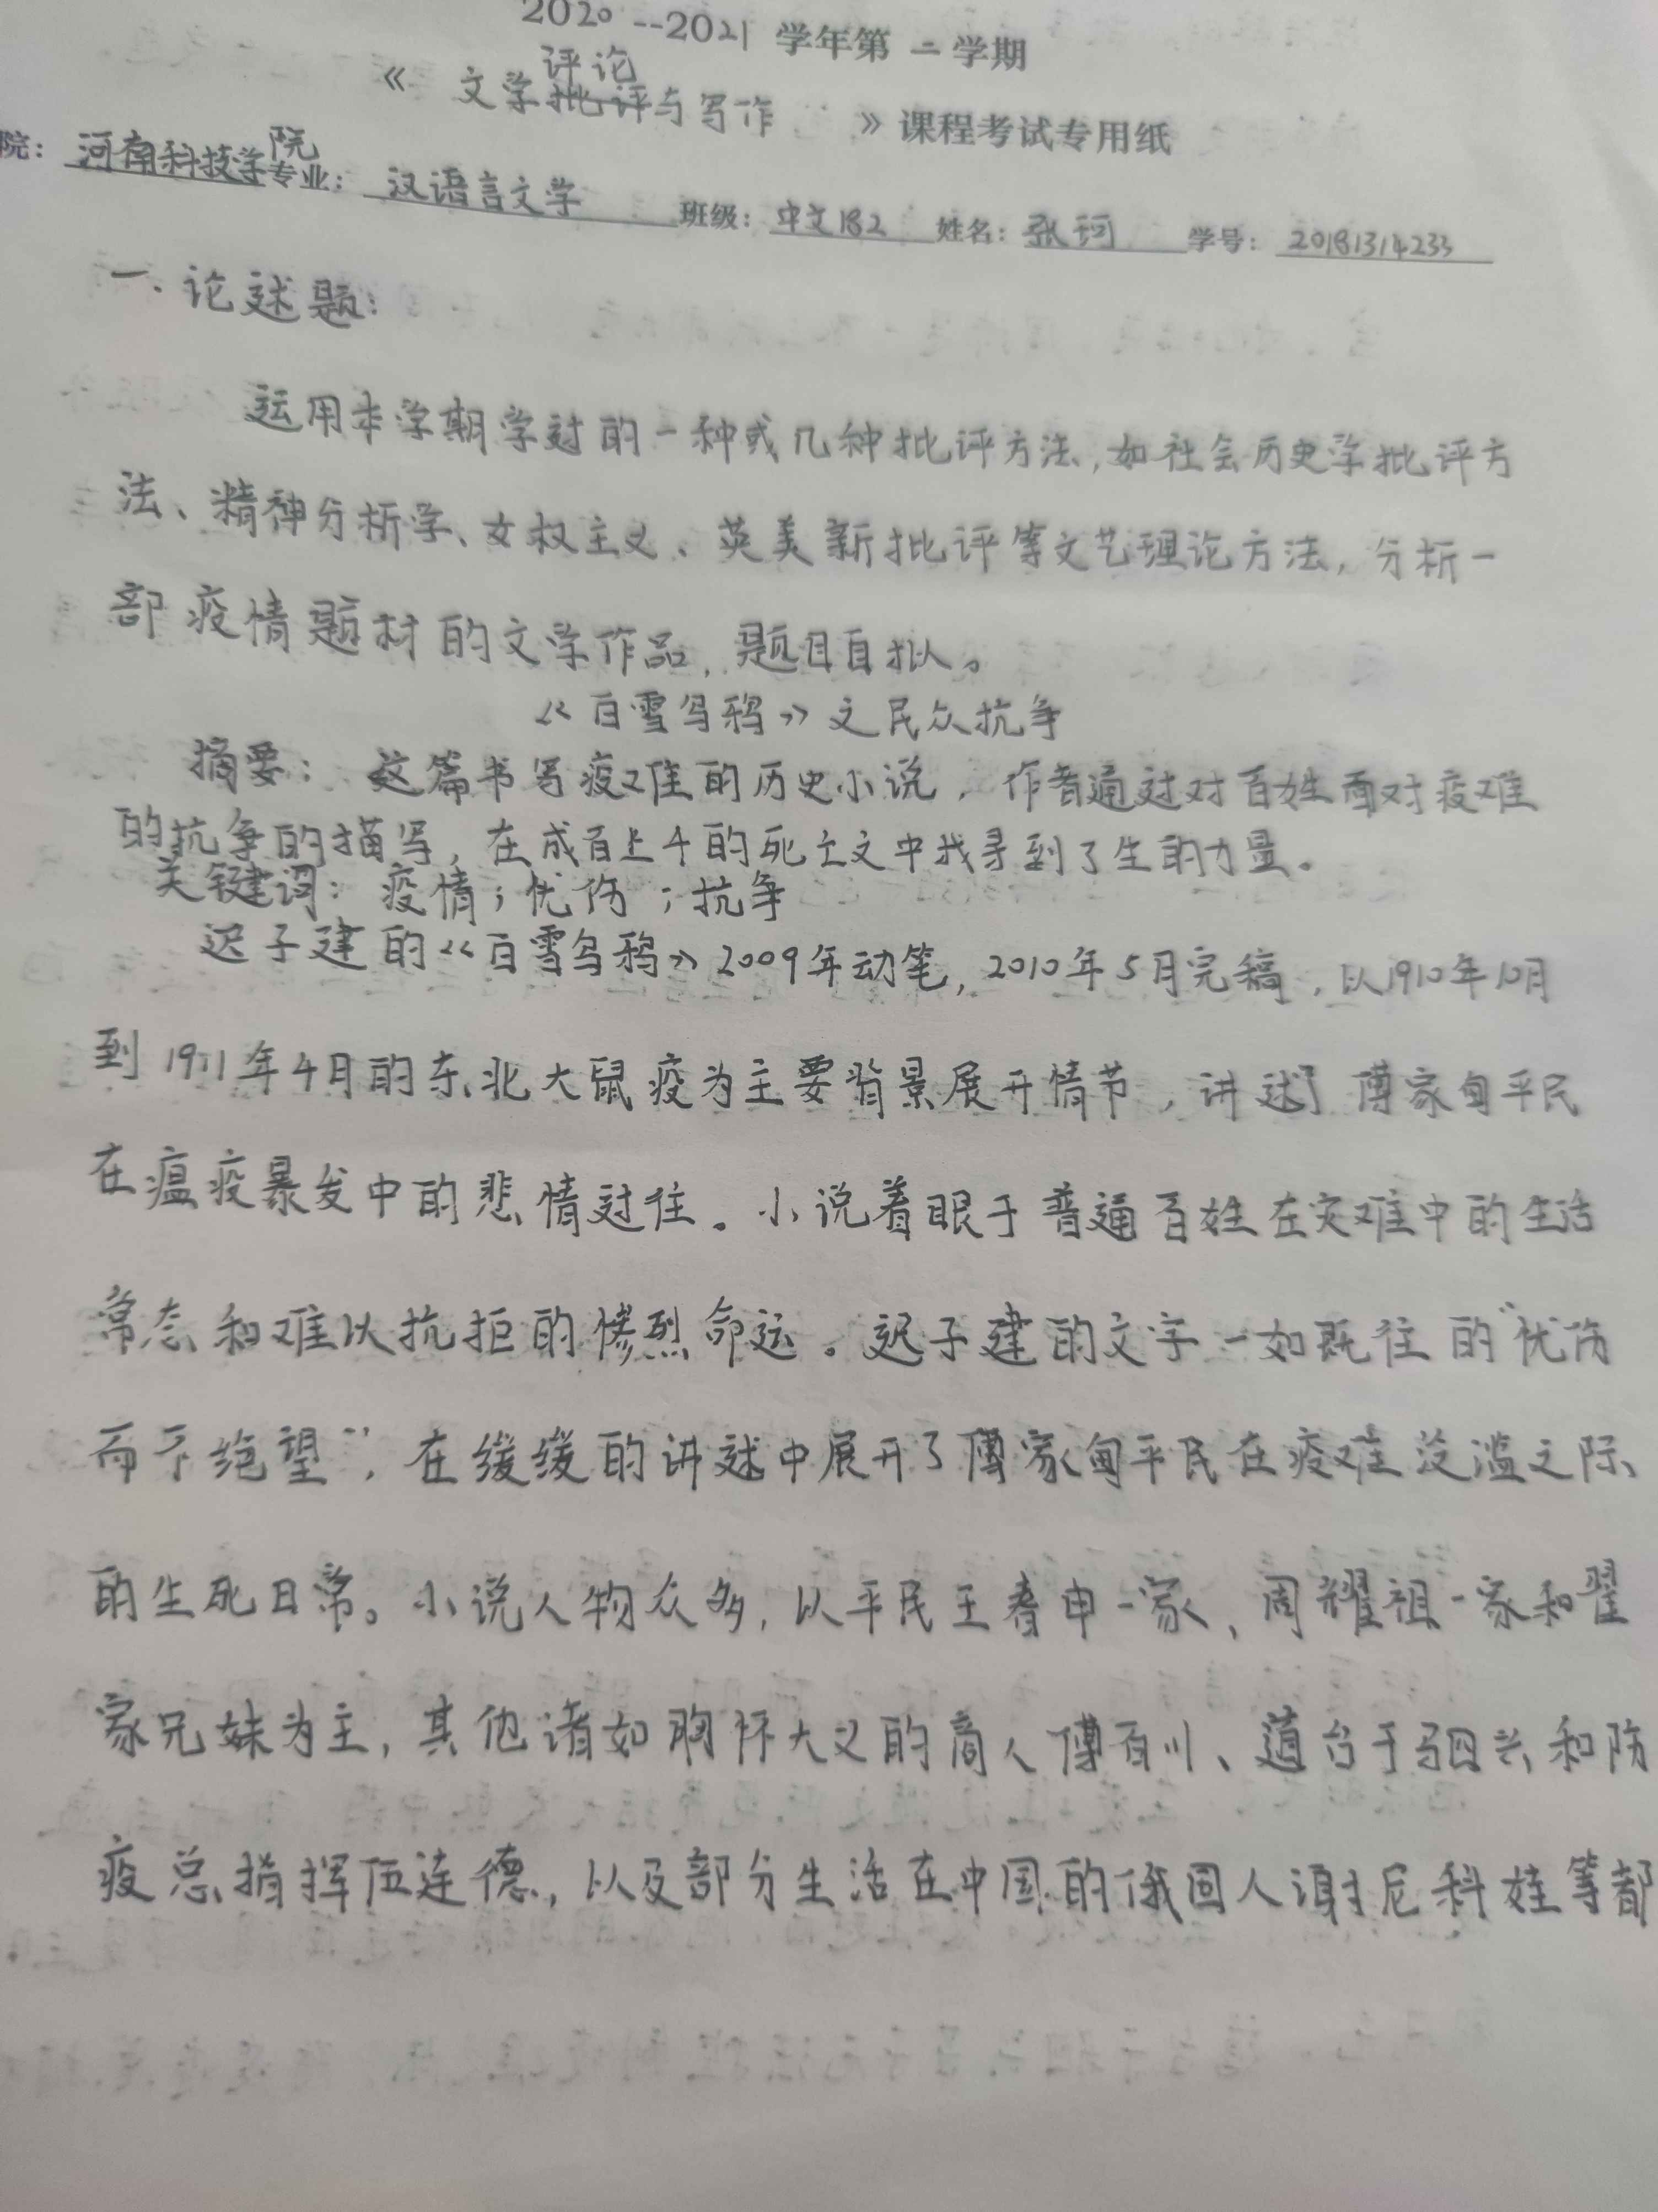 2020--2021学年第二学期
《文学评论与写作》课程考试专用纸
院：河南科技学院 专业：汉语言文学 班级：中文182 姓名：张珂 学号：20181314233
一、论述题：
运用本学期学过的一种或几种批评方法，如社会历史学批评方
法、精神分析学、女权主义、英美新批评等文艺理论方法，分析一
部疫情题材的文学作品，题目自拟。
《白雪乌鸦》之民众抗争
摘要：这篇书写疫难的历史小说，作者通过对百姓面对疫难
的抗争的描写，在成百上千的死亡之中找寻到了生的力量。
关键词：疫情；忧伤；抗争
迟子建的《白雪乌鸦》2009年动笔，2010年5月完稿，以1910年10月
到1911年4月的东北大鼠疫为主要背景展开情节，讲述了傅家甸平民
在瘟疫暴发中的悲情过往。小说着眼于普通百姓在灾难中的生活
常态和难以抗拒的惨烈命运。迟子建的文字一如既往的“忧伤
而不绝望”，在缓缓的讲述中展开了傅家甸平民在疫难泛滥之际
的生死日常。小说人物众多，以平民王春申一家、周耀祖一家和翟
家兄妹为主，其他诸如胸怀大义的商人傅百川、道台于驷兴和防
疫总指挥伍连德，以及部分生活在中国的俄国人谢尼科娃等都